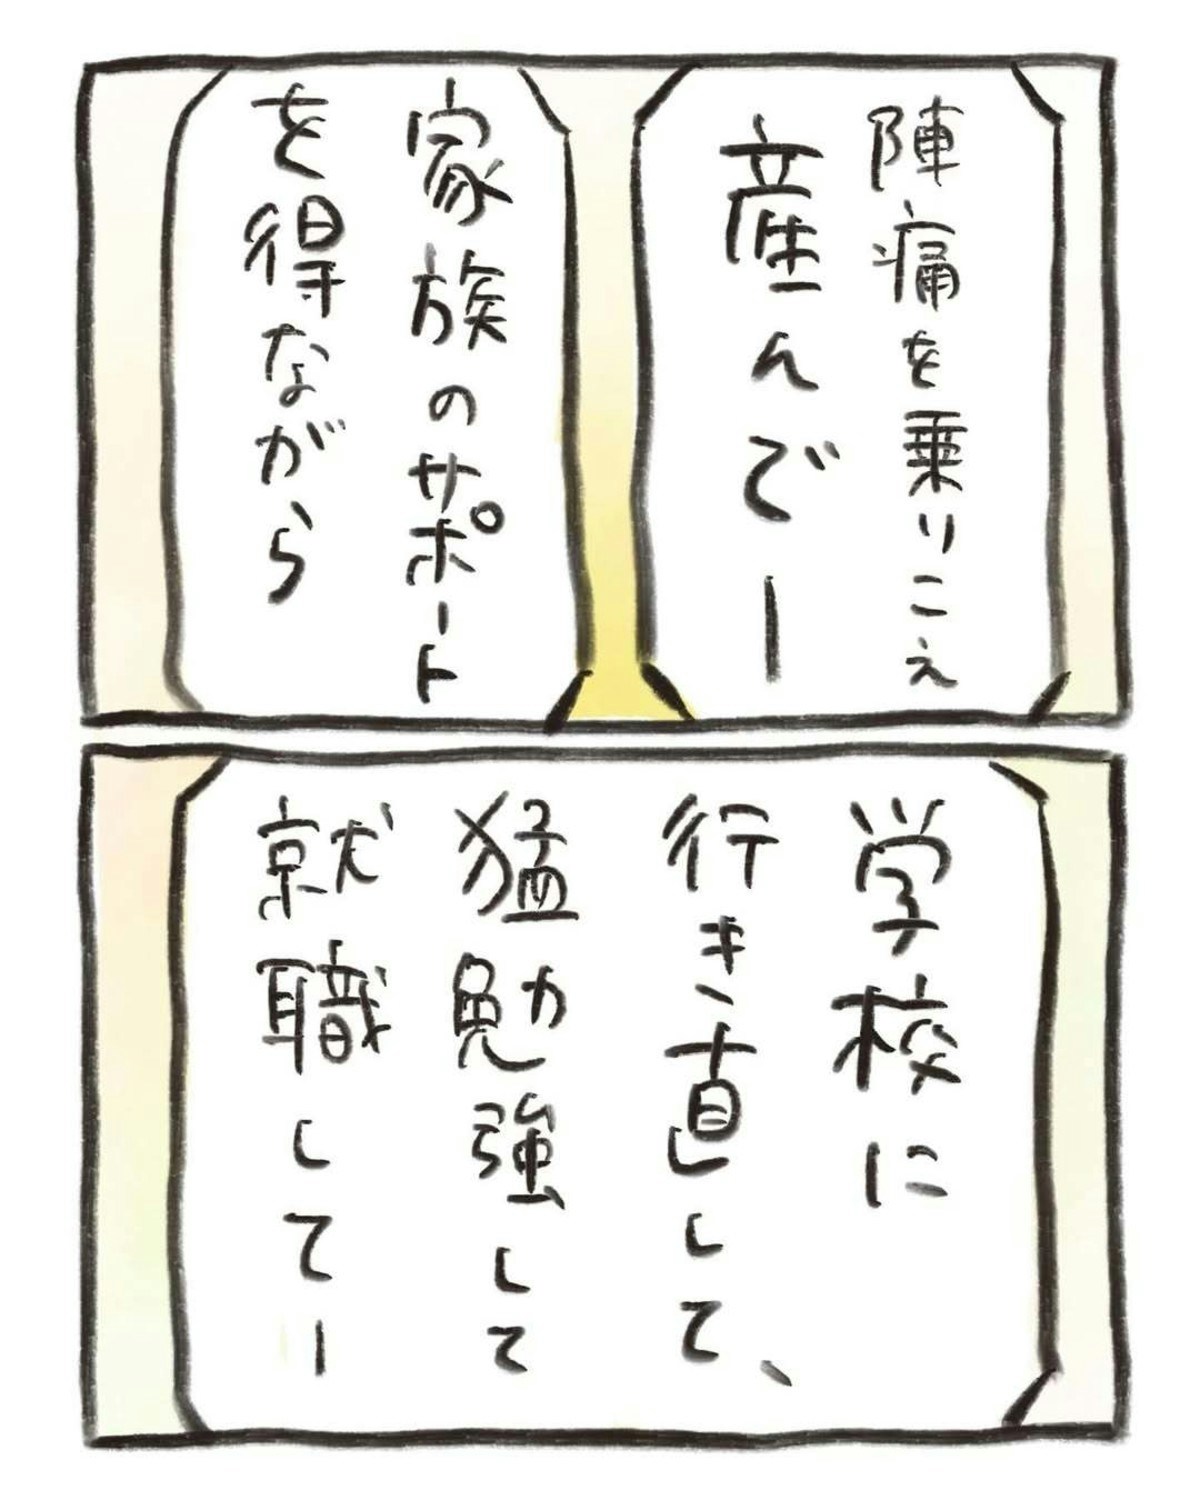 陣痛を乗りこえ
産んでー
家族のサポート
を得ながら
学校に
行き直して、
猛勉強して
就職してー